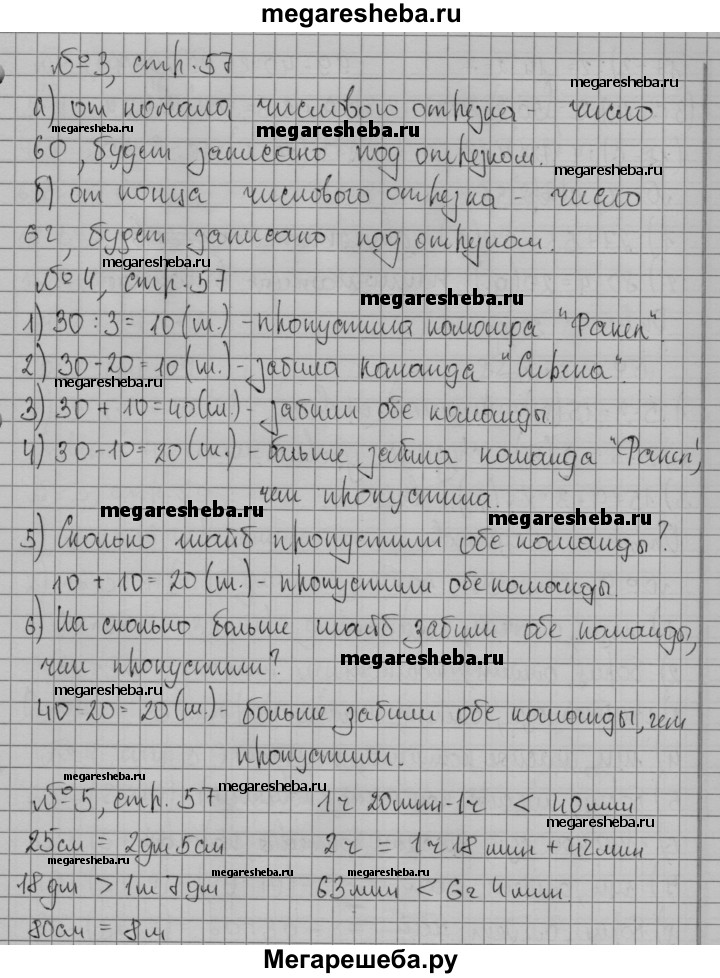 megaresheba.ru
№3, стр. 57
megaresheba.ru
а) от начала числового отрезка - число
megaresheba.ru
megaresheba.ru
60, будет записано под отрезком.
megaresheba.ru
б) от конца числового отрезка - число
62, будет записано под отрезком.
megaresheba.ru
№4, стр. 57
megaresheba.ru
1) 30 : 3 = 10 (ш.) - пропустила команда "Факел".
megaresheba.ru
2) 30 - 20 = 10 (ш.) - забила команда "Сирена".
megaresheba.ru
3) 30 + 10 = 40 (ш.) - забили обе команды.
4) 30 - 10 = 20 (ш.) - больше забила команда "Факел",
чем пропустила.
megaresheba.ru
megaresheba.ru
5) Сколько шайб пропустили обе команды?
10 + 10 = 20 (ш.) - пропустили обе команды.
6) На сколько больше шайб забили обе команды,
чем пропустили?
megaresheba.ru
megaresheba.ru
40 - 20 = 20 (ш.) - больше забили обе команды, чем
пропустили.
megaresheba.ru
megaresheba.ru
№5, стр. 57 1 ч 20 мин - 1 ч < 40 мин
megaresheba.ru
25 см = 2 дм 5 см 2 ч = 1 ч 18 мин + 42 мин
megaresheba.ru
megaresheba.ru
18 дм > 1 м 7 дм 63 мин < 6 ч 4 мин
megaresheba.ru
megaresheba.ru
80 см = 8 м
Мегарешеба.ру